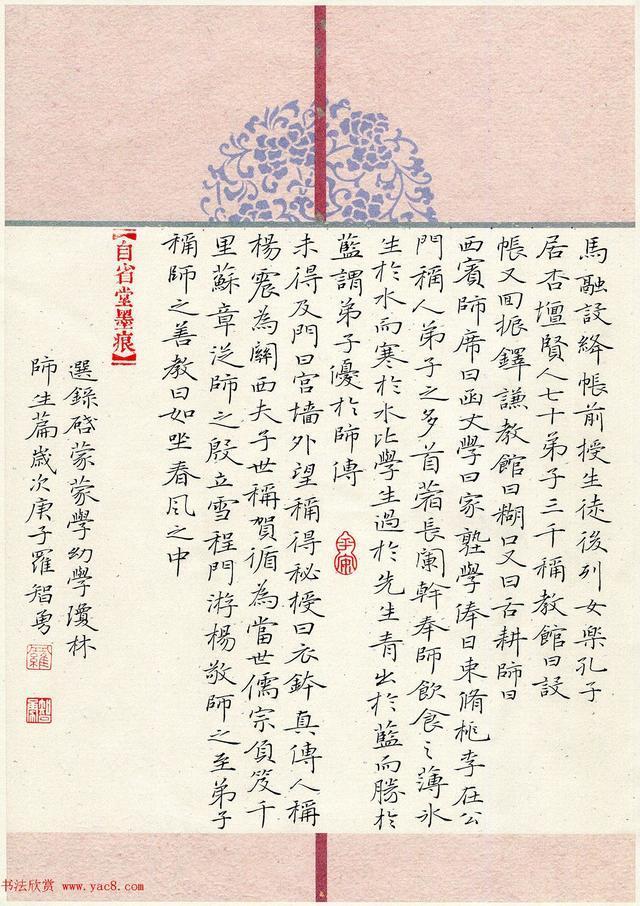 馬融設絳帳前授生徒後列女樂孔子
居杏壇賢人七十弟子三千稱教館曰設
帳又曰振鐸謙教館曰糊口又曰舌耕師曰
西賓師席曰函丈學曰家塾學俸曰束脩桃李在公
門稱人弟子之多苜蓿長闌幹奉師飲食之薄冰
生於水而寒於水比學生過於先生青出於藍而勝於
藍謂弟子優於師傅
未得及門曰宮墻外望稱得秘授曰衣鉢真傳人稱
楊震為關西夫子世稱賀循為當世儒宗負笈千
里蘇章從師之殷立雪程門游楊敬師之至弟子
稱師之善教曰如坐春風之中
【自省堂墨痕】
選錄啓蒙蒙學幼學瓊林
師生篇歲次庚子羅智勇
羅
智勇
书法欣赏 www.yac8.com